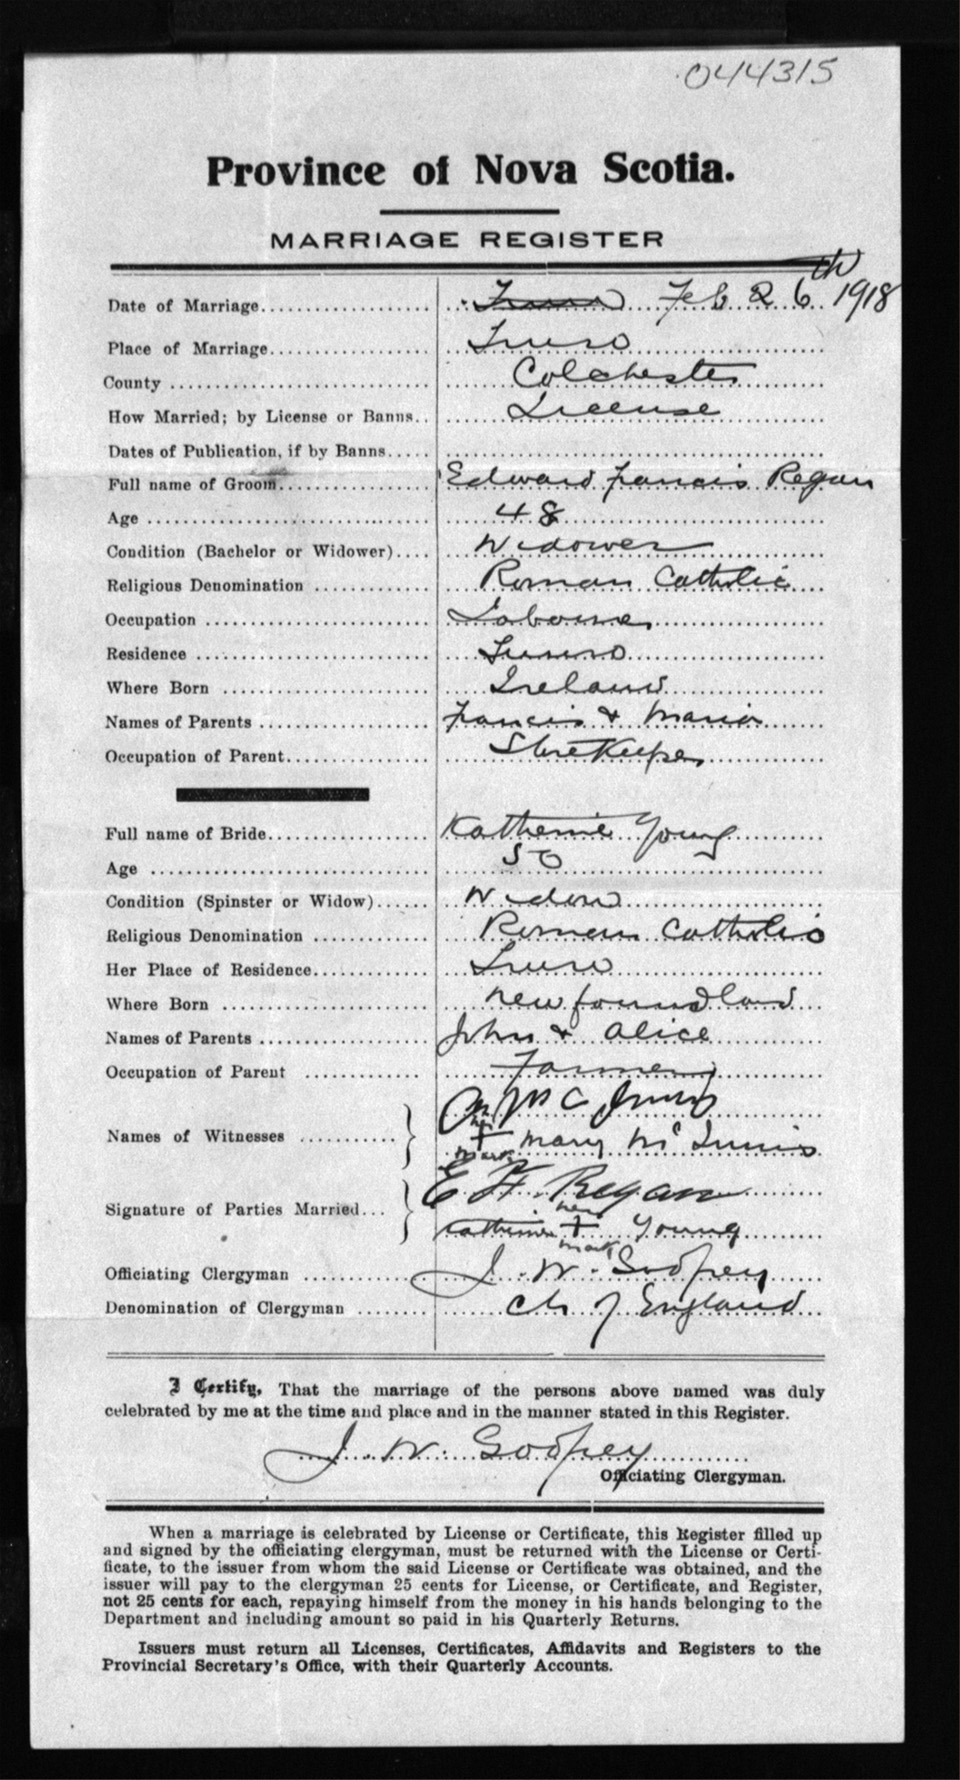 044315
Province of Nova Scotia.
MARRIAGE REGISTER
Date of Marriage Truro Feb 26th 1918
Place of Marriage Truro
County Colchester
How Married; by License or Banns License
Dates of Publication, if by Banns
Full name of Groom Edward Francis Regan
Age 48
Condition (Bachelor or Widower) Widower
Religious Denomination Roman Catholic
Occupation Labourer
Residence Truro
Where Born Ireland
Names of Parents Francis & Maria
Occupation of Parent Storekeeper
Full name of Bride Katherine Young
Age 50
Condition (Spinster or Widow) Widow
Religious Denomination Roman Catholic
Her Place of Residence Truro
Where Born Newfoundland
Names of Parents John & Alice
Occupation of Parent Farmer
McInnis
Names of Witnesses her + mark Mary McInnis
E F Regan
Signature of Parties Married Catherine her + mark Young
Officiating Clergyman J. W. Godfrey
Denomination of Clergyman Ch of England
I Certify, That the marriage of the persons above named was duly
celebrated by me at the time and place and in the manner stated in this Register.
J. W. Godfrey
Officiating Clergyman.
When a marriage is celebrated by License or Certificate, this Register filled up
and signed by the officiating clergyman, must be returned with the License or Certi-
ficate, to the issuer from whom the said License or Certificate was obtained, and the
issuer will pay to the clergyman 25 cents for License, or Certificate, and Register,
not 25 cents for each, repaying himself from the money in his hands belonging to the
Department and including amount so paid in his Quarterly Returns.
Issuers must return all Licenses, Certificates, Affidavits and Registers to the
Provincial Secretary's Office, with their Quarterly Accounts.